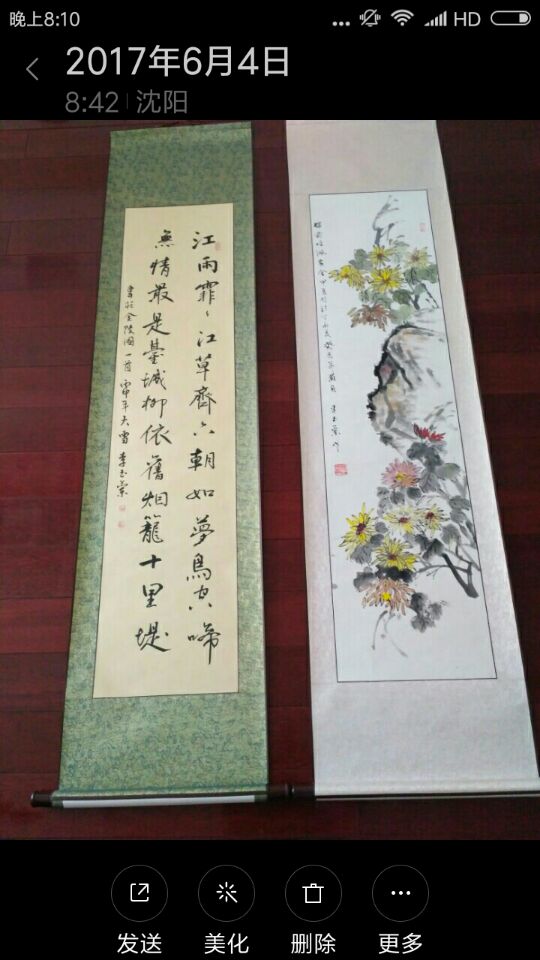 晚上8:10
... HD
2017年6月4日
8:42 沈阳
江雨霏〻江草齊六朝如夢鳥空啼
無情最是臺城柳依舊烟籠十里堤
韋莊金陵圖一首 丙申年大雪 李玉棠
发送
美化
删除
更多